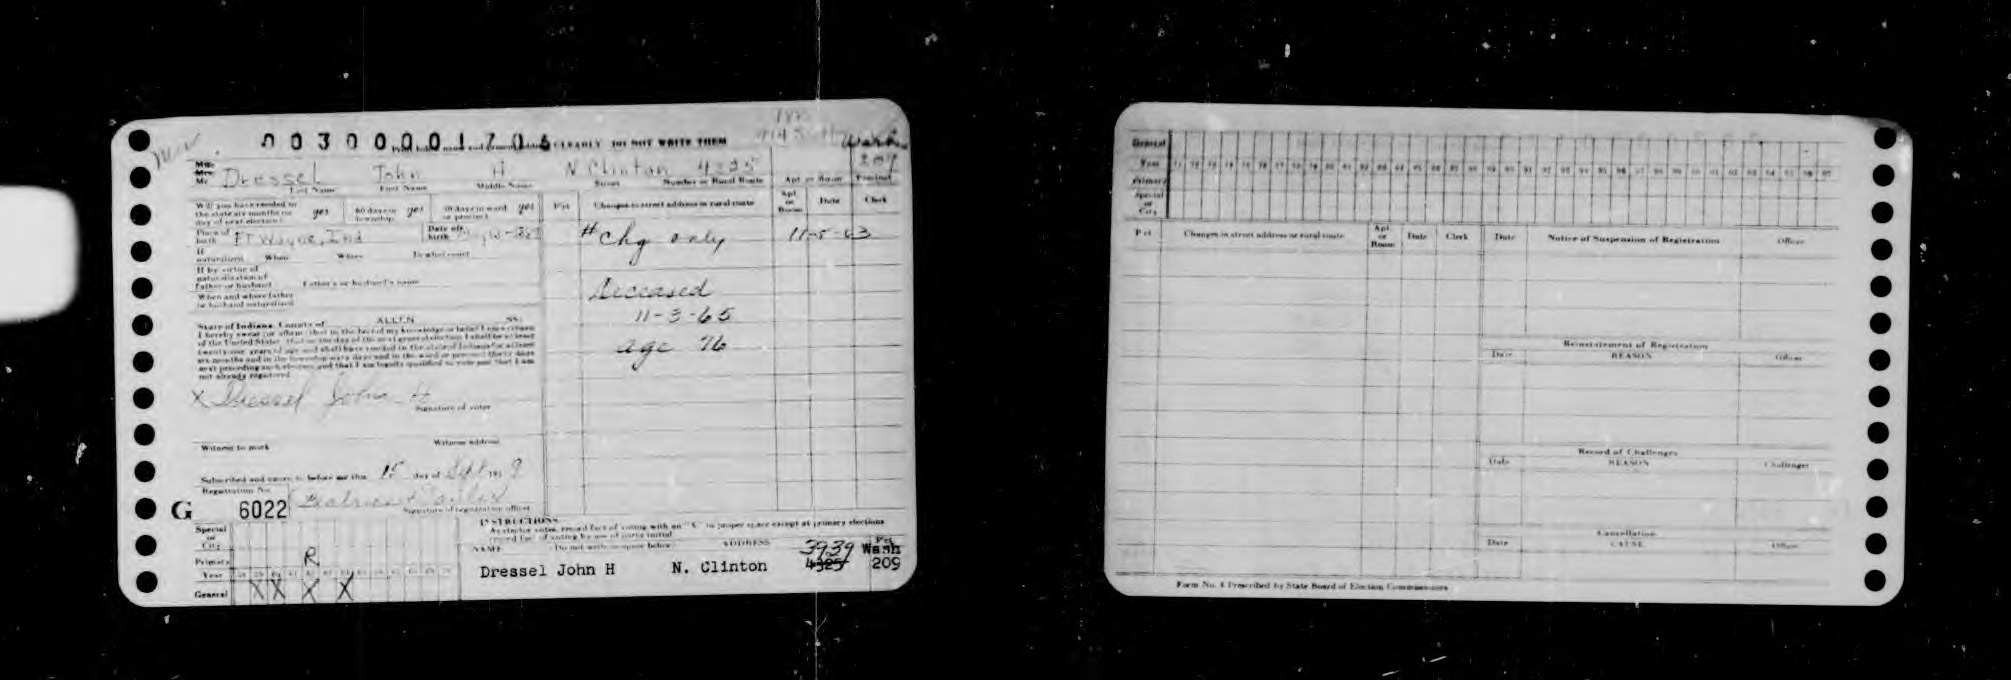 00300001706 CLEARLY DO NOT WRITE THEM
Mr Dressel John H N Clinton 4325 209
Last Name First Name Middle Name Street Number or Rural Route Apt or Room Precinct
Will you have resided in the state six months on day of next election? yes 60 days in township yes 30 days in ward or precinct yes
Pct Changes in street address or rural route Apt or Room Date Clerk
Place of birth Ft Wayne, Ind Date of birth
# chg only 11-5-63
If naturalized When Where In what court
If by virtue of naturalization of Father or husband Father's or husband's name
When and where father or husband naturalized
Deceased
11-3-65
age 76
State of Indiana, County of ALLEN SS:
I hereby swear (or affirm) that to the best of my knowledge or belief I am a citizen
of the United States, that on the day of the next general election I shall be at least
twenty-one years of age and shall have resided in the state of Indiana for at least
six months and in the township sixty days and in the ward or precinct thirty days
next preceding such election and that I am legally qualified to vote and that I am
not already registered.
X Dressel John H
Signature of voter
Witness to mark Witness address
Subscribed and sworn to before me this 15 day of Sept 195 9
Registration No.
G 6022 Beatrice
Signature of registration officer
INSTRUCTIONS
As elector votes, record fact of voting with an "X" in proper space except at primary elections
record fact of voting by use of party initial
Special or City
Primary R
Year
General X X X X
NAME (Do not write in space below) ADDRESS Pct
Dressel John H N. Clinton 3939 4325 Wash 209
General
Year 71 72 73 74 75 76 77 78 79 80 81 82 83 84 85 86 87 88 89 90 91 92 93 94 95 96 97 98 99
Primary
Special or City
Pct Changes in street address or rural route Apt or Room Date Clerk
Date Notice of Suspension of Registration Officer
Reinstatement of Registration
Date REASON Officer
Record of Challenges
Date REASON Challenger
Cancellation
Date CAUSE Officer
Form No. 4 Prescribed by State Board of Election Commissioners